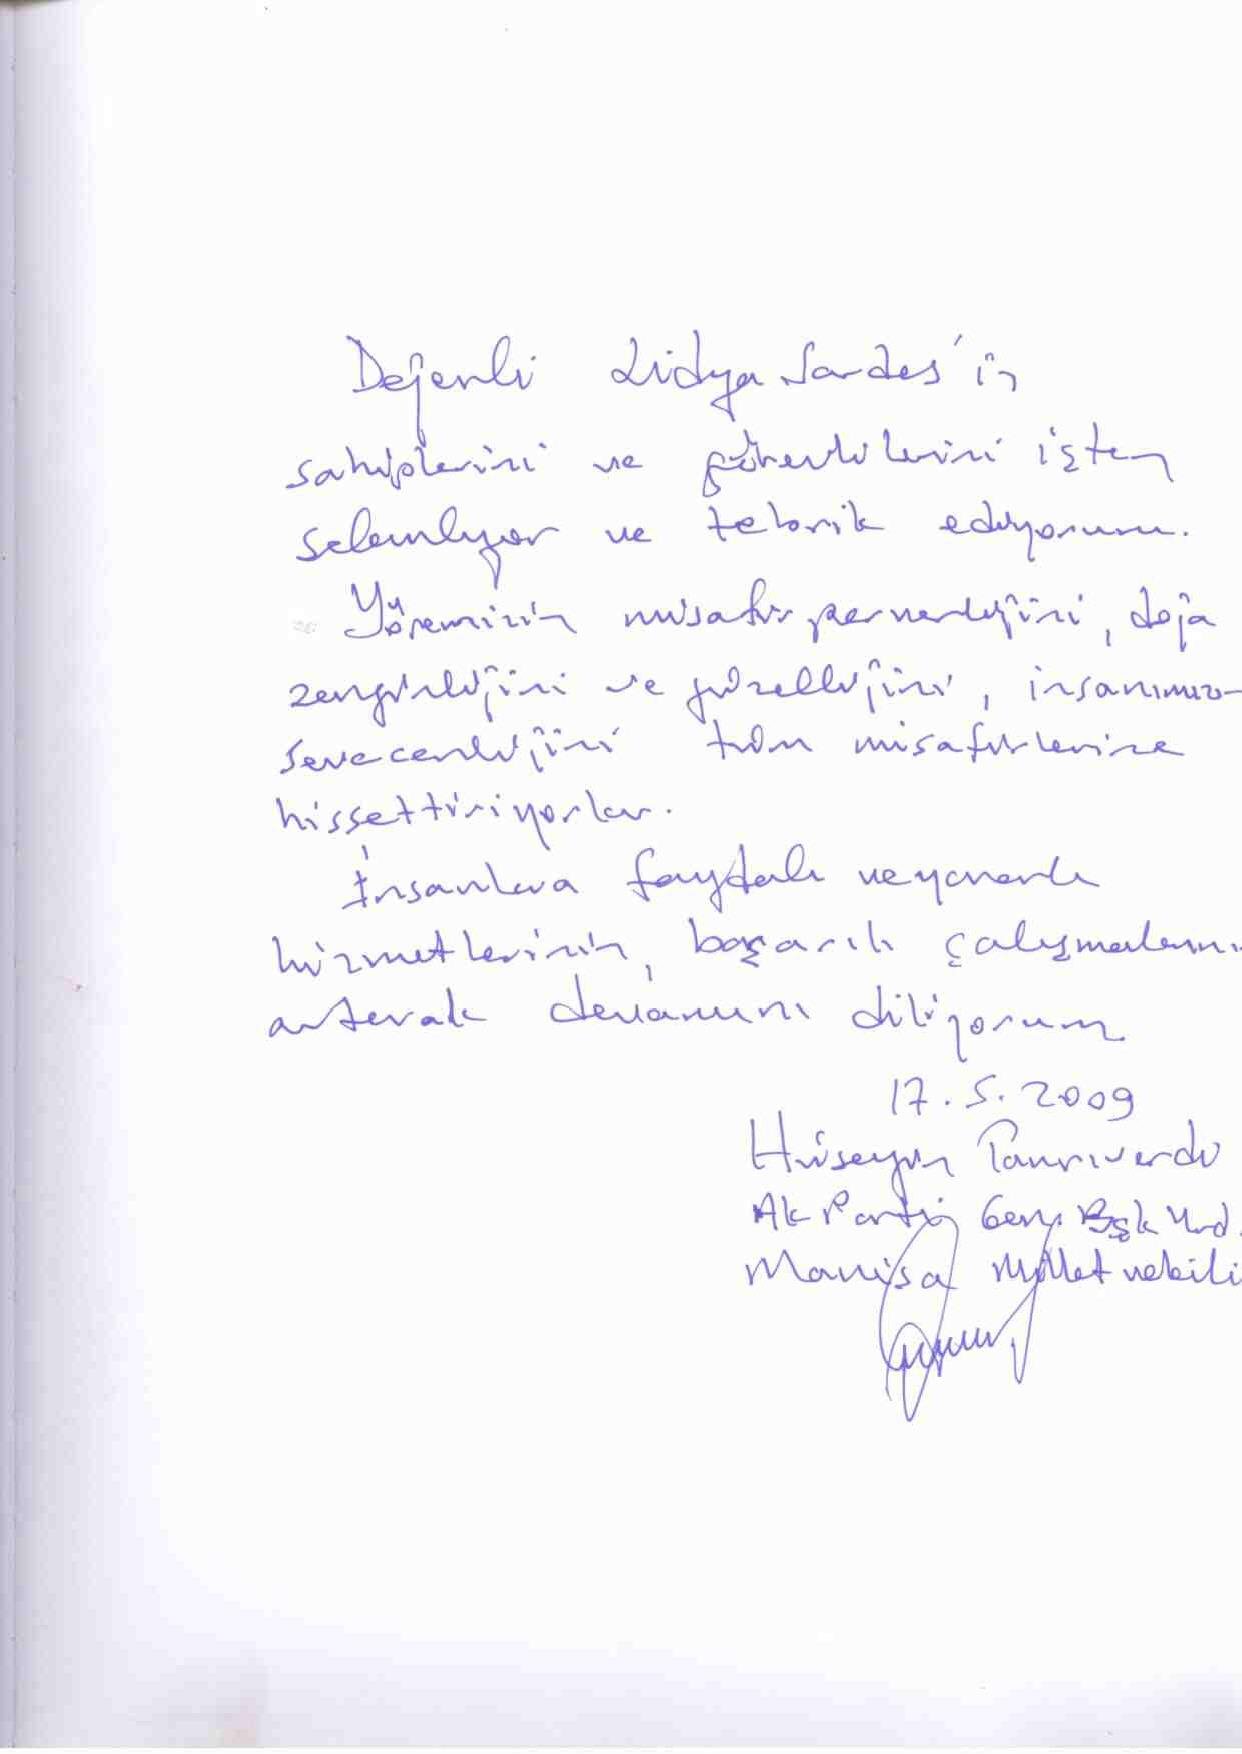 Değerli Lidya Sardes'in
sahiplerini ve görevlilerini içten
selamlıyor ve tebrik ediyorum.
Yöremizin misafirperverliğini, doğa
zenginliğini ve güzelliğini, insanımız-
sevecenliğini tüm misafirlerine
hissettiriyorlar.
İnsanlara faydalı ve yararlı
hizmetlerinin, başarılı çalışmalarını
artarak devamını diliyorum
17.5.2009
Hüseyin Tanrıverdi
Ak Parti Gen. Bşk Yrd.
Manisa Milletvekili